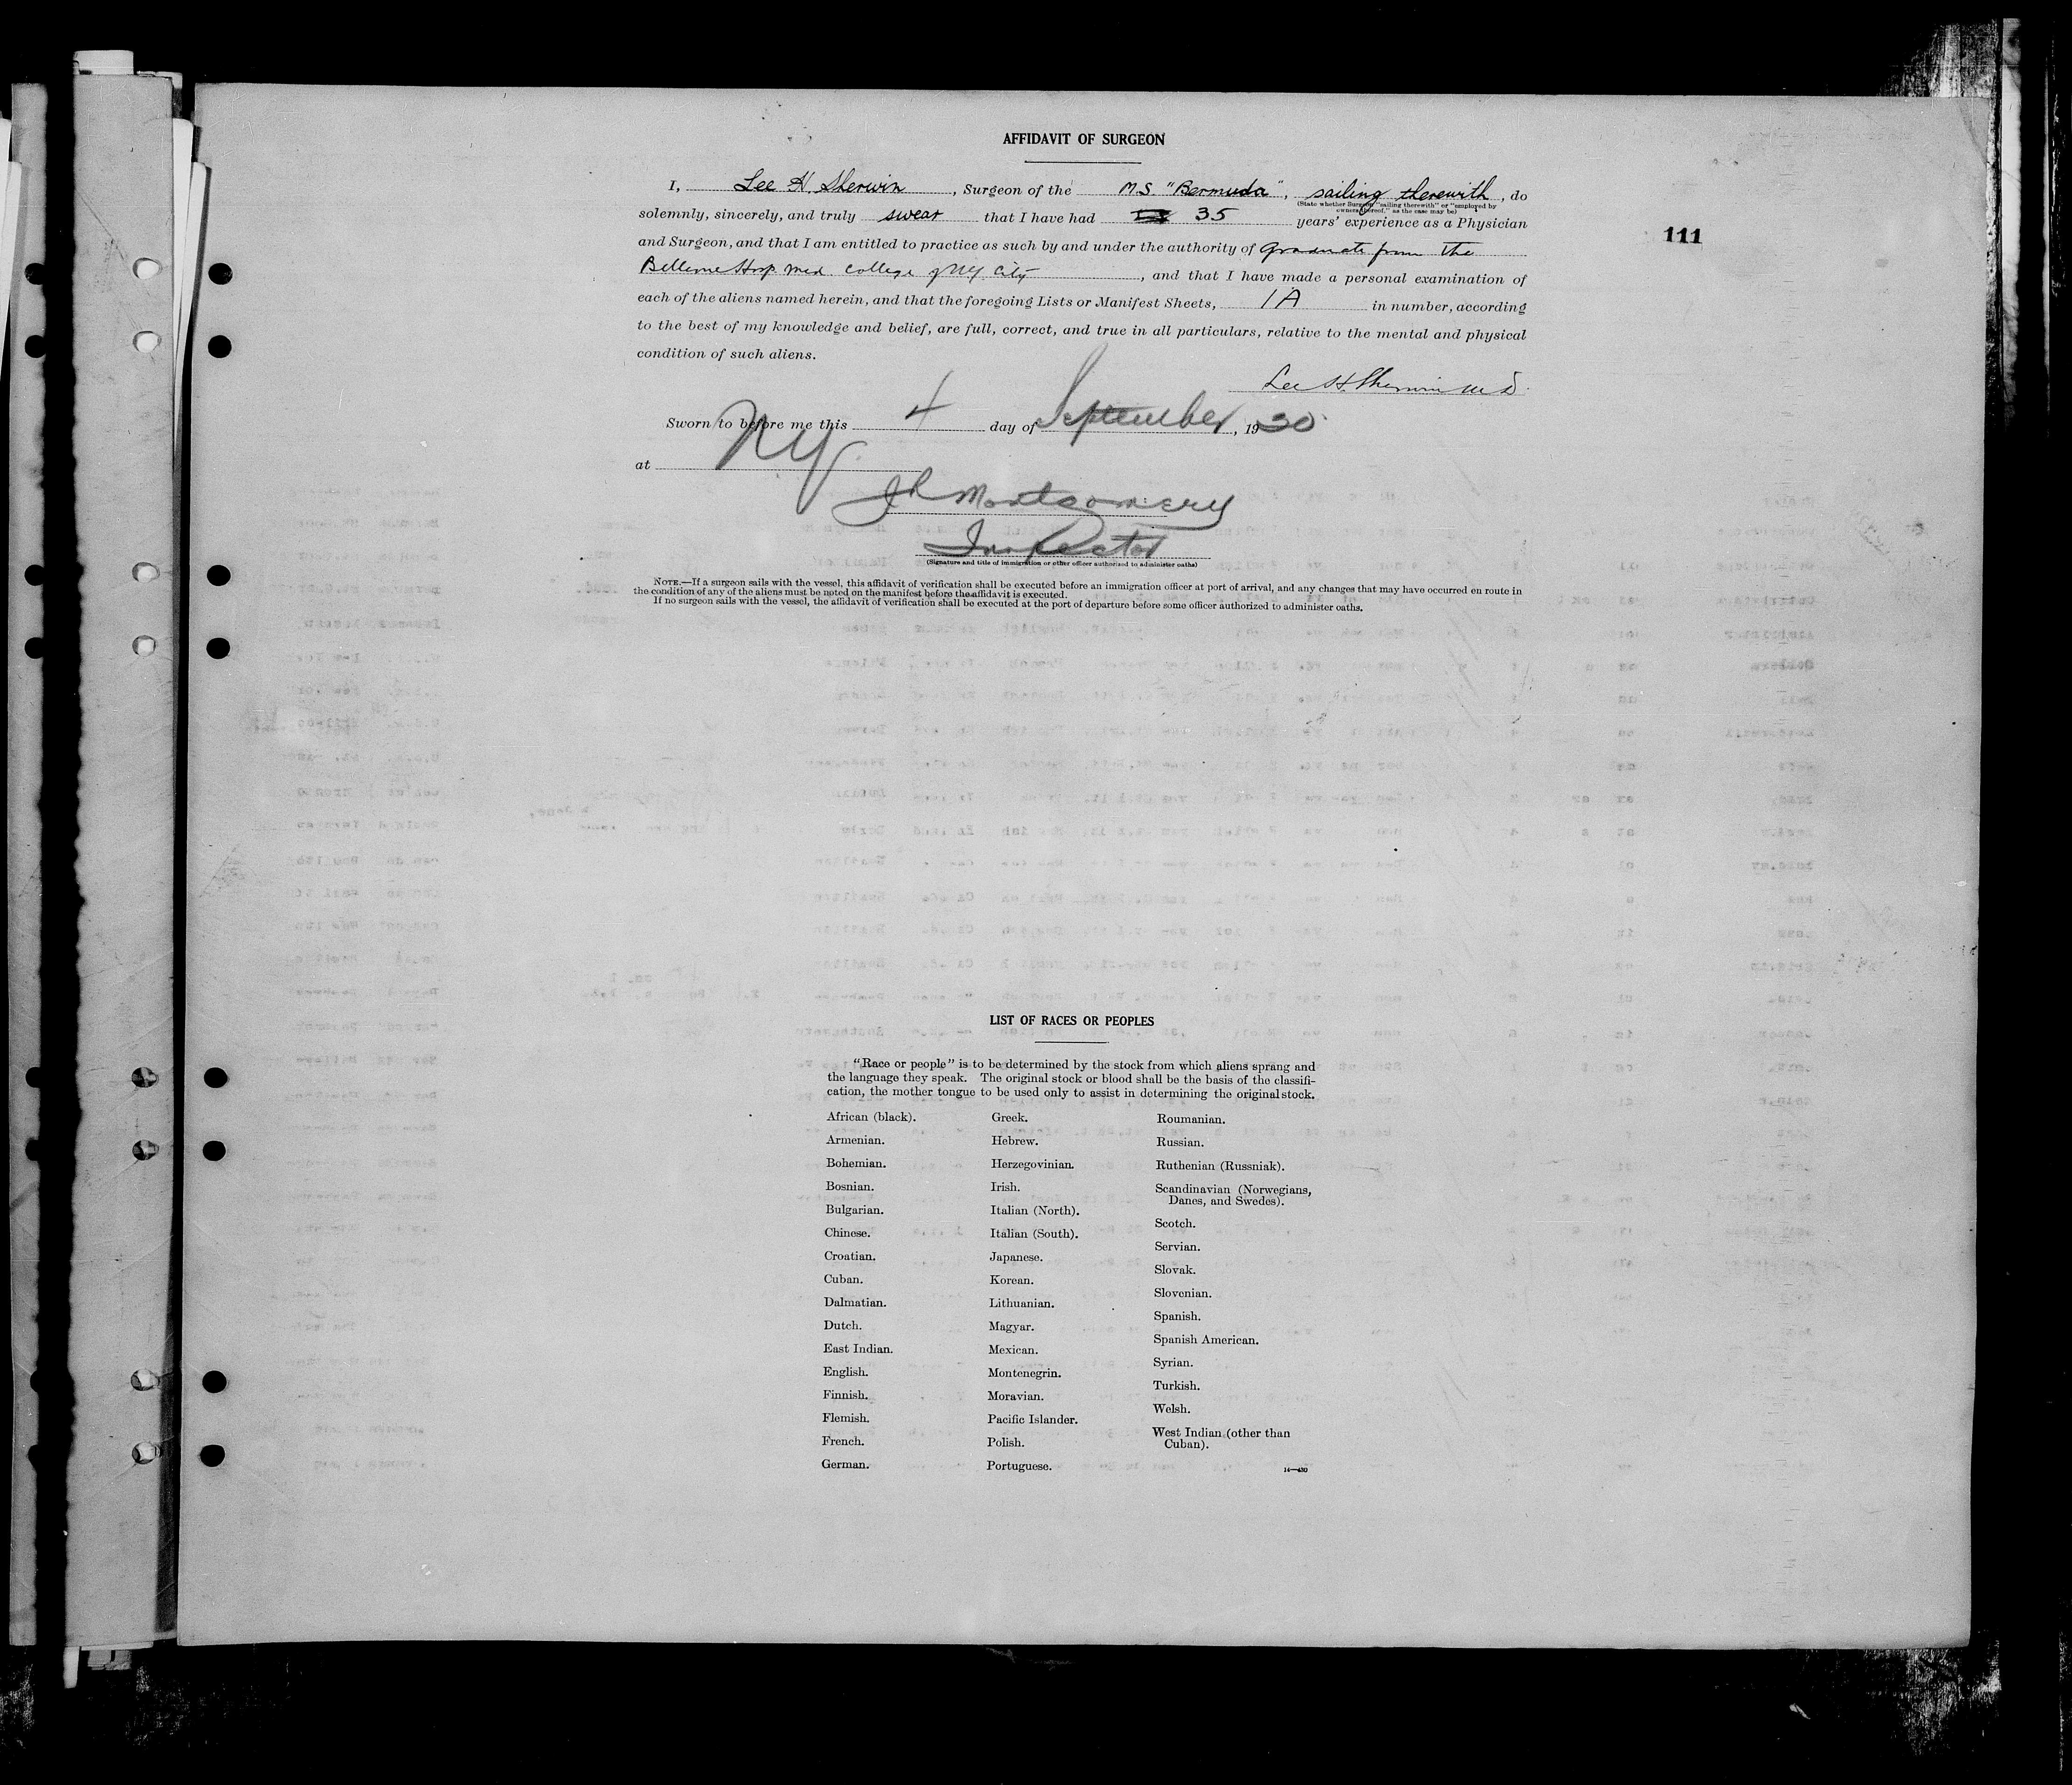 AFFIDAVIT OF SURGEON
I, Lee H. Sherwin, Surgeon of the MS "Bermuda", sailing therewith, do
(State whether Surgeon "sailing therewith" or "employed by
owners thereof," as the case may be)
solemnly, sincerely, and truly swear that I have had 35 years' experience as a Physician
111
and Surgeon, and that I am entitled to practice as such by and under the authority of graduate from the
Bellevue Hosp Med College of NY City, and that I have made a personal examination of
each of the aliens named herein, and that the foregoing Lists or Manifest Sheets, 1A in number, according
to the best of my knowledge and belief, are full, correct, and true in all particulars, relative to the mental and physical
condition of such aliens.
Lee H. Sherwin M D.
Sworn to before me this 4 day of September, 1930
at NY
Montgomery
Inspector
(Signature and title of immigration or other officer authorized to administer oaths)
NOTE.—If a surgeon sails with the vessel, this affidavit of verification shall be executed before an immigration officer at port of arrival, and any changes that may have occurred en route in
the condition of any of the aliens must be noted on the manifest before the affidavit is executed.
If no surgeon sails with the vessel, the affidavit of verification shall be executed at the port of departure before some officer authorized to administer oaths.
LIST OF RACES OR PEOPLES
"Race or people" is to be determined by the stock from which aliens sprang and
the language they speak. The original stock or blood shall be the basis of the classifi-
cation, the mother tongue to be used only to assist in determining the original stock.
African (black).
Armenian.
Bohemian.
Bosnian.
Bulgarian.
Chinese.
Croatian.
Cuban.
Dalmatian.
Dutch.
East Indian.
English.
Finnish.
Flemish.
French.
German.
Greek.
Hebrew.
Herzegovinian.
Irish.
Italian (North).
Italian (South).
Japanese.
Korean.
Lithuanian.
Magyar.
Mexican.
Montenegrin.
Moravian.
Pacific Islander.
Polish.
Portuguese.
Roumanian.
Russian.
Ruthenian (Russniak).
Scandinavian (Norwegians,
Danes, and Swedes).
Scotch.
Servian.
Slovak.
Slovenian.
Spanish.
Spanish American.
Syrian.
Turkish.
Welsh.
West Indian (other than
Cuban).
14—430